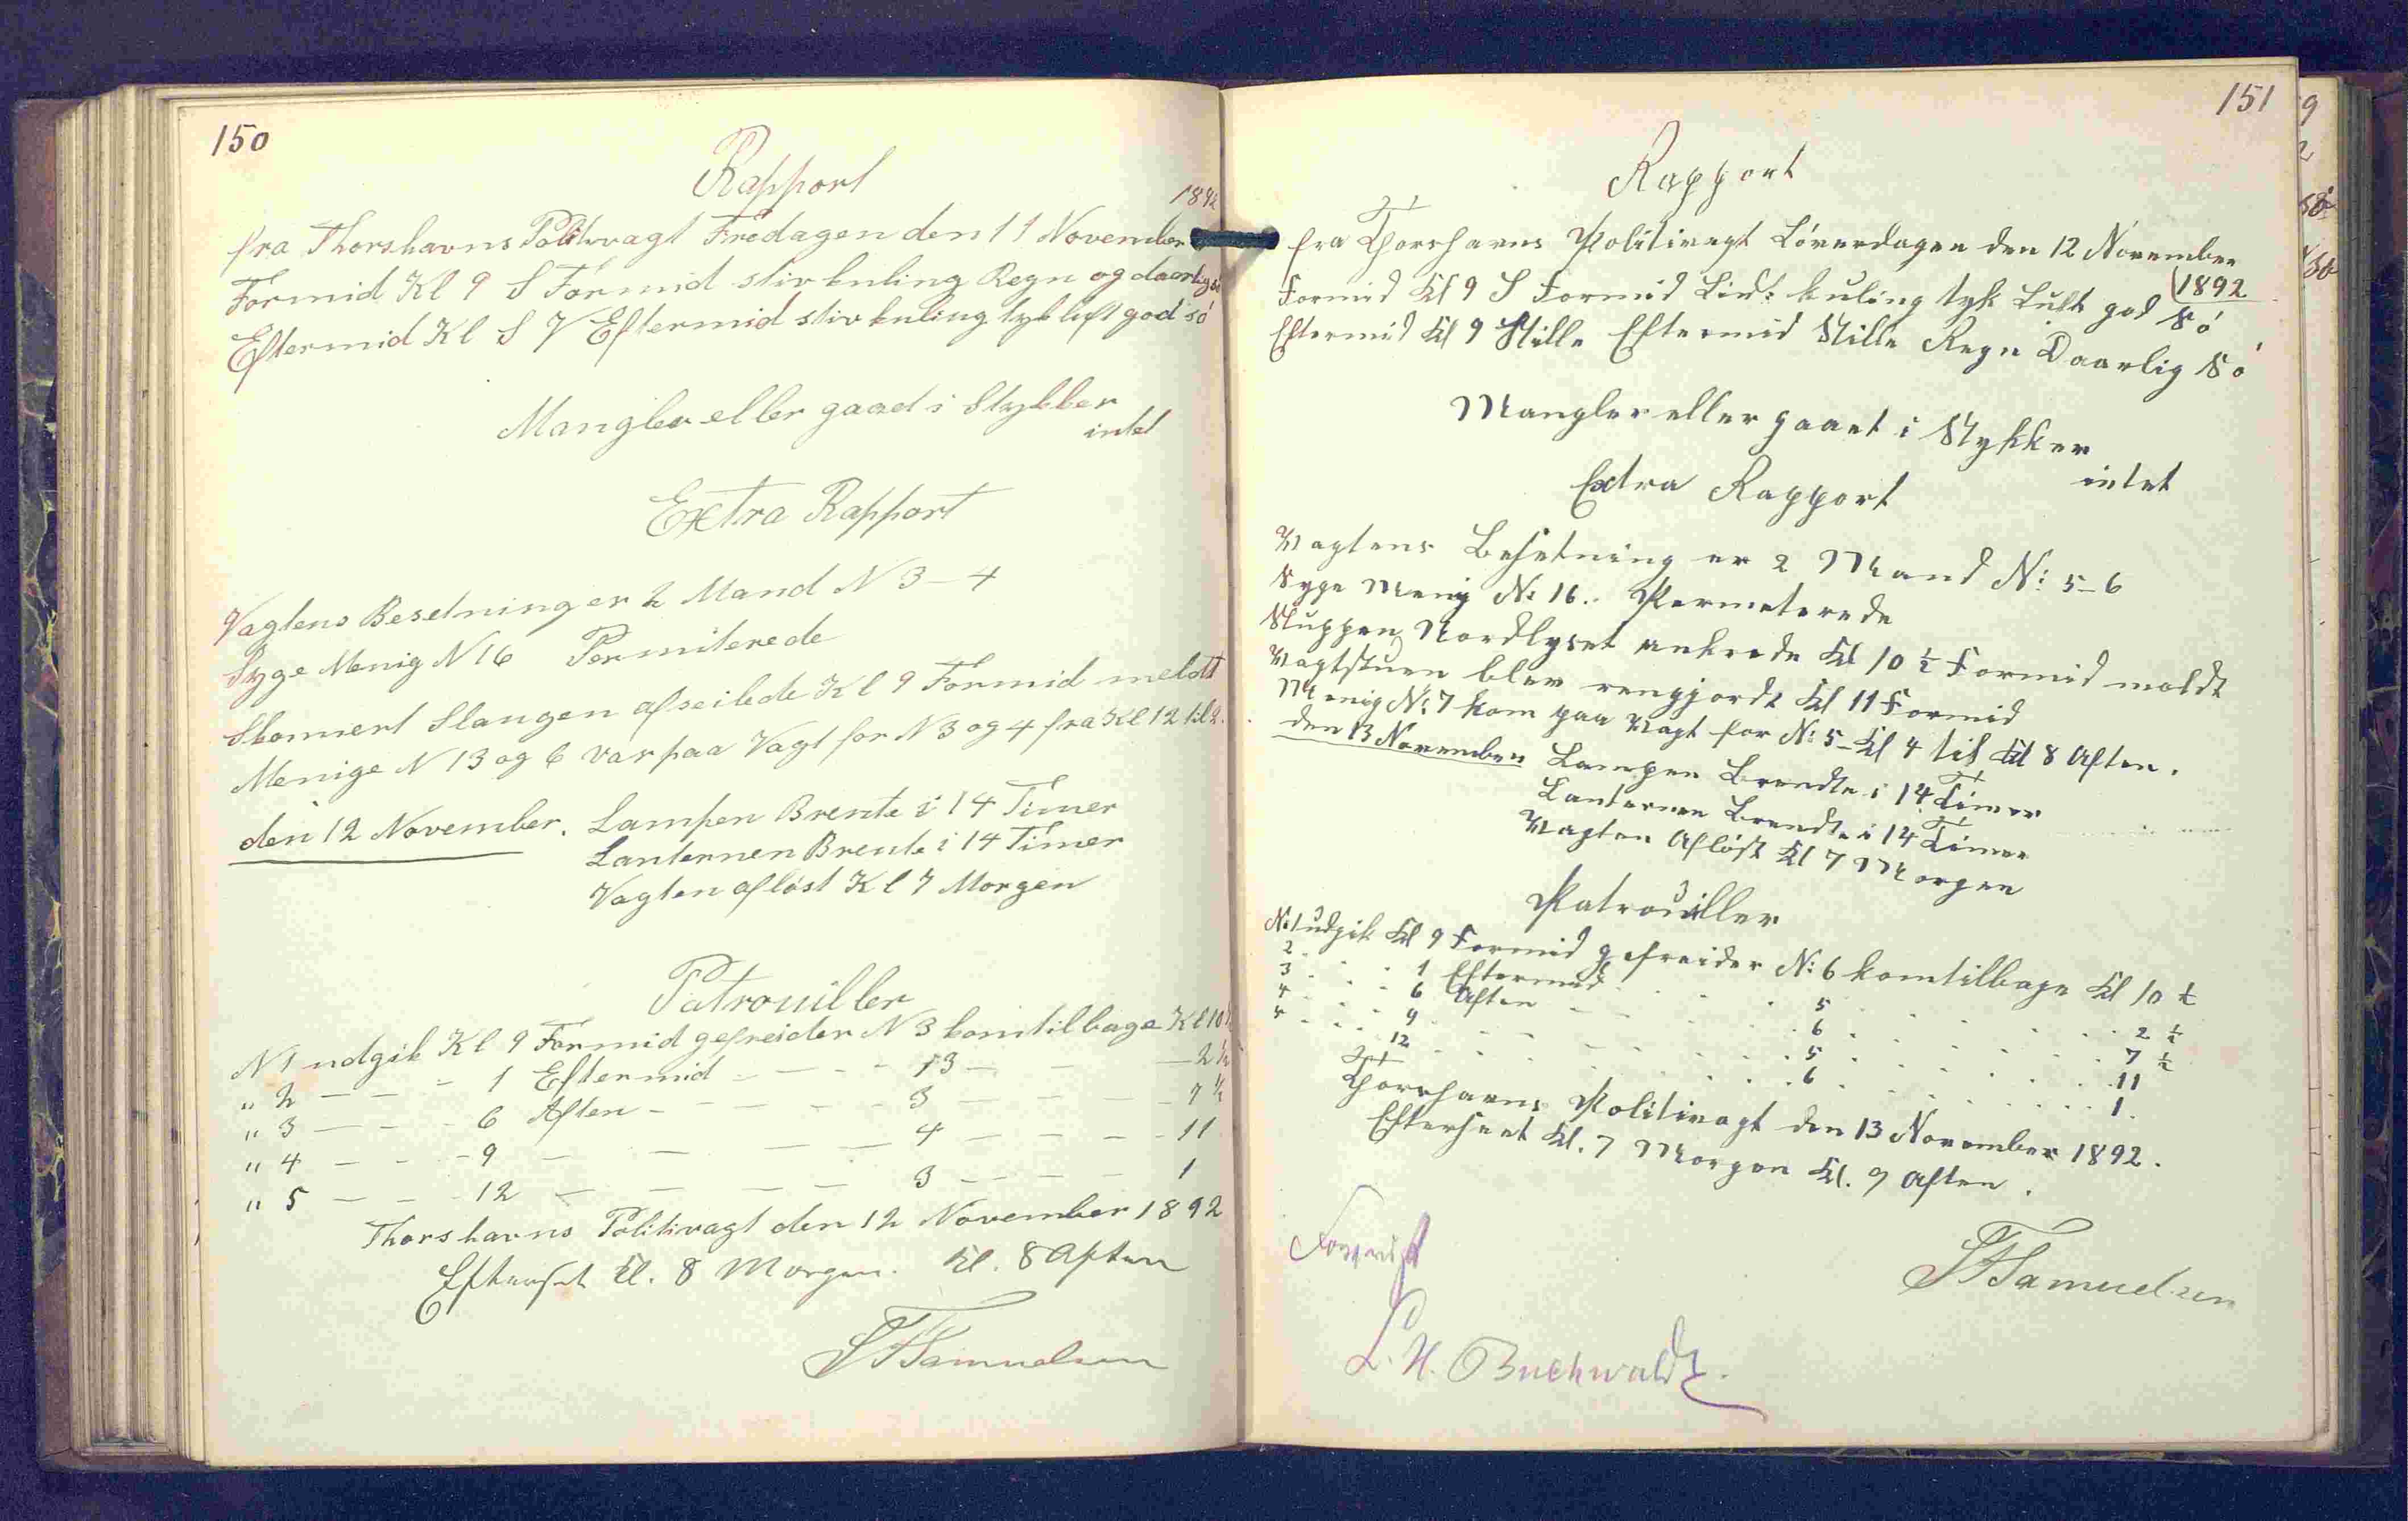 150
Rapport
1892
fra Thorshavns Politivagt Fredagen den 11 November
Formid Kl 9 S Formid stiv kuling Regn og daarlig só
Eftermid Kl S V Eftermid stiv kuling tyk luft god só
Mangler eller gaaed i Stykker
intet
Extra Rapport
Vagtens Besetning er 2 Mand N 3 – 4
Syge Menig N 16 Permiterede
Skonnert Slangen afseilede Kl 9 Formid meldt
Menige N 13 og 6 var paa Vagt for N 3 og 4 fra Kl 12 til 2.
den 12 November. Lampen Brente i 14 Timer
Lanternen Brente i 14 Timer
Vagten aflóst Kl 7 Morgen
Patrouiller
N 1 udgik Kl 9 Formid gefreider N 3 komtilbage Kl 10 ½
" 2 – – – 1 Eftermid – – – – 13 – – – 2 ½
" 3 – – – 6 Aften – – – – – 3 – – – – 7 ½
" 4 – – – 9 – – – – 4 – – – – 11
" 5 – – – 12 – – – – 3 – – – – 1
Thorshavns Politivagt den 12 November 1892
Efterset Kl. 8 Morgen. Kl. 8 Aften
Samuelsen
151
Rapport
fra Thorshavns Politivagt Lóverdagen den 12 November
1892
Formid Kl 9 S Formid Lint: kuling tyk Luft god Só
Eftermid Kl 9 Stille Eftermid Stille Regn Daarlig Só
Mangler eller gaaet i Stykker
intet
Extra Rapport
Vagtens Besetning er 2 Mand N: 5–6
Syge Menig N: 16. Permeterede
Sluppen Nordlyset ankrede Kl 10 ½ Formid meldt
Vagtstuen blev rengjordt Kl 11 Formid
Menig N: 7 kom paa Vagt for N: 5 – Kl 4 til Kl 8 Aften.
den 13 November Lampen Brendte i 14 Timer
Lanternen Brendte i 14 Timer
Vagten Aflóst Kl 7 Morgen
Patrouiller
N: 1 udgik Kl 9 Formid gefreider N: 6 komtilbage Kl 10 ½
2 . . . 1 Eftermid . . . . 5 . . . . 2 ½
3 . . . 6 Aften . . . . 6 . . . . 7 ½
4 . . . 9 . . . . 5 . . . . 11
5 . . . 12 . . . . 6 . . . . 1.
Thorshavns Politivagt den 13 November 1892.
Efterseet Kl. 7 Morgen Kl. 9 Aften.
Samuelsen
Forevist
L. H. Buchwaldt.